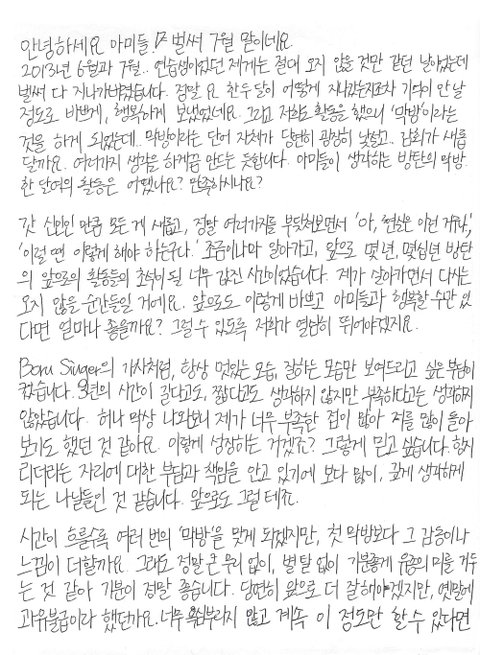 안녕하세요 아미들! 벌써 7월 말이네요.
2013년 6월과 7월.. 연습생이었던 제게는 절대 오지 않을 것만 같던 날이었는데
벌써 다 지나가버렸습니다. 정말 요 한두달이 어떻게 지나갔는지조차 기억이 안 날
정도로 바쁘게, 행복하게 보냈었네요. 그리고 저희도 활동을 했으니 '막방'이라는
것을 하게 되었는데.. 막방이라는 단어 자체가 당연히 굉장히 낯설고, 감회가 새롭
달까요. 여러가지 생각을 하게끔 만드는 듯합니다. 아미들이 생각하는 방탄의 막방.
한 달여의 활동은 어땠나요? 만족하시나요?
갓 신인인 만큼 모든 게 새롭고, 정말 여러가지를 부딪쳐보면서 '아, 현실은 이런 거구나,'
'이럴 땐 이렇게 해야 하는구나.' 조금이나마 알아가고, 앞으로 몇 년, 몇십년 방탄
의 앞으로의 활동들의 초석이 될 너무 값진 시간이었습니다. 제가 살아가면서 다시는
오지 않을 순간들일 거에요. 앞으로도 이렇게 바쁘고 아미들과 행복할 수만 있
다면 얼마나 좋을까요? 그럴 수 있도록 저희가 열심히 뛰어야겠지요.
Born Singer의 가사처럼, 항상 멋있는 모습, 잘하는 모습만 보여드리고 싶은 부담이
컸습니다. 3년의 시간이 길다고도, 짧다고도 생각하지 않지만 부족하다고는 생각하지
않았습니다. 허나 막상 나와보니 제가 너무 부족한 점이 많아 저를 많이 돌아
보기도 했던 것 같아요. 이렇게 성장하는 거겠죠? 그렇게 믿고 싶습니다. 항시
리더라는 자리에 대한 부담과 책임을 안고 있기에 보다 많이, 깊게 생각하게
되는 나날들인 것 같습니다. 앞으로도 그럴 테죠.
시간이 흐를수록 여러 번의 '막방'을 맞게 되겠지만, 첫 막방보다 그 감동이나
느낌이 더할까요. 그래도 정말 큰 무리 없이, 별 탈 없이 기분좋게 유종의 미를 거두
는 것 같아 기분이 정말 좋습니다. 당연히 앞으로 더 잘해야겠지만, 옛말에
과유불급이라 했던가요. 너무 욕심부리지 않고 계속 이 정도만 할 수 있다면